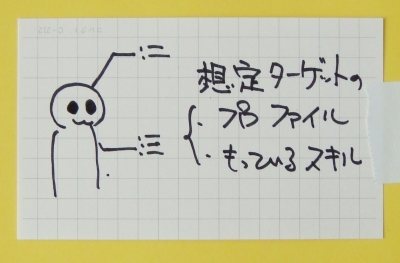 想定ターゲットの
・プロファイル
・もっているスキル